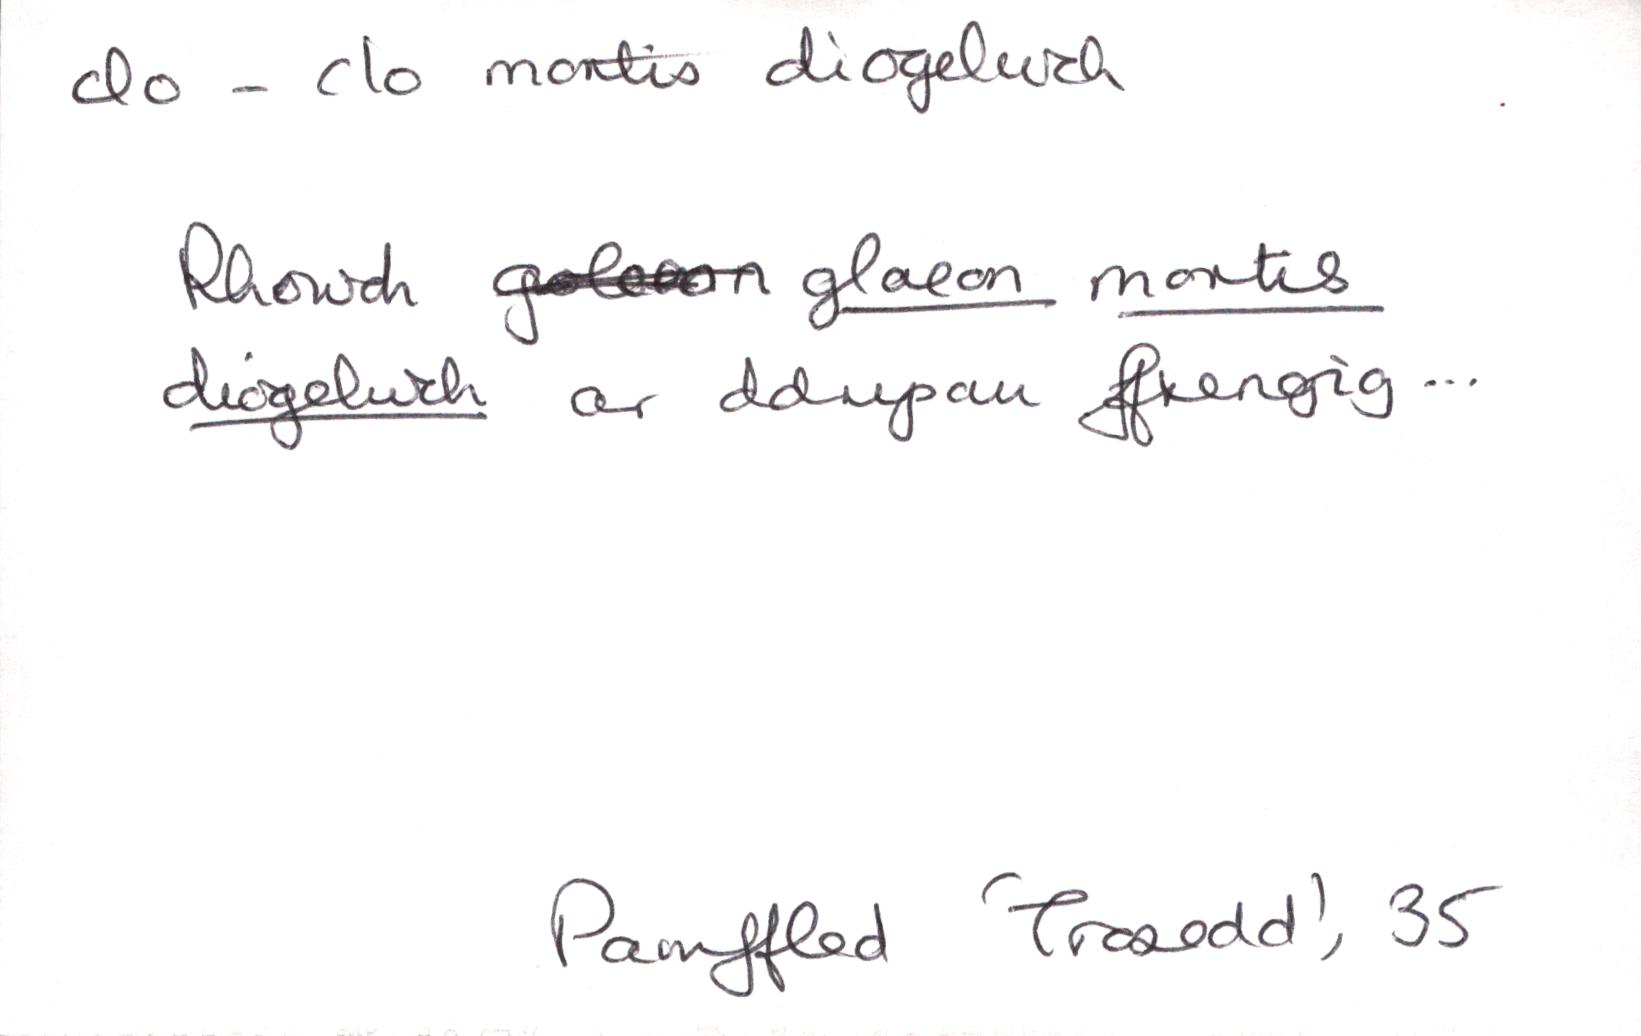 clo - clo mortis diogelwch
Rhowch gloeon mortis
diogelwch ar ddrysau ffrengig...
Pamffled 'Trosedd', 35